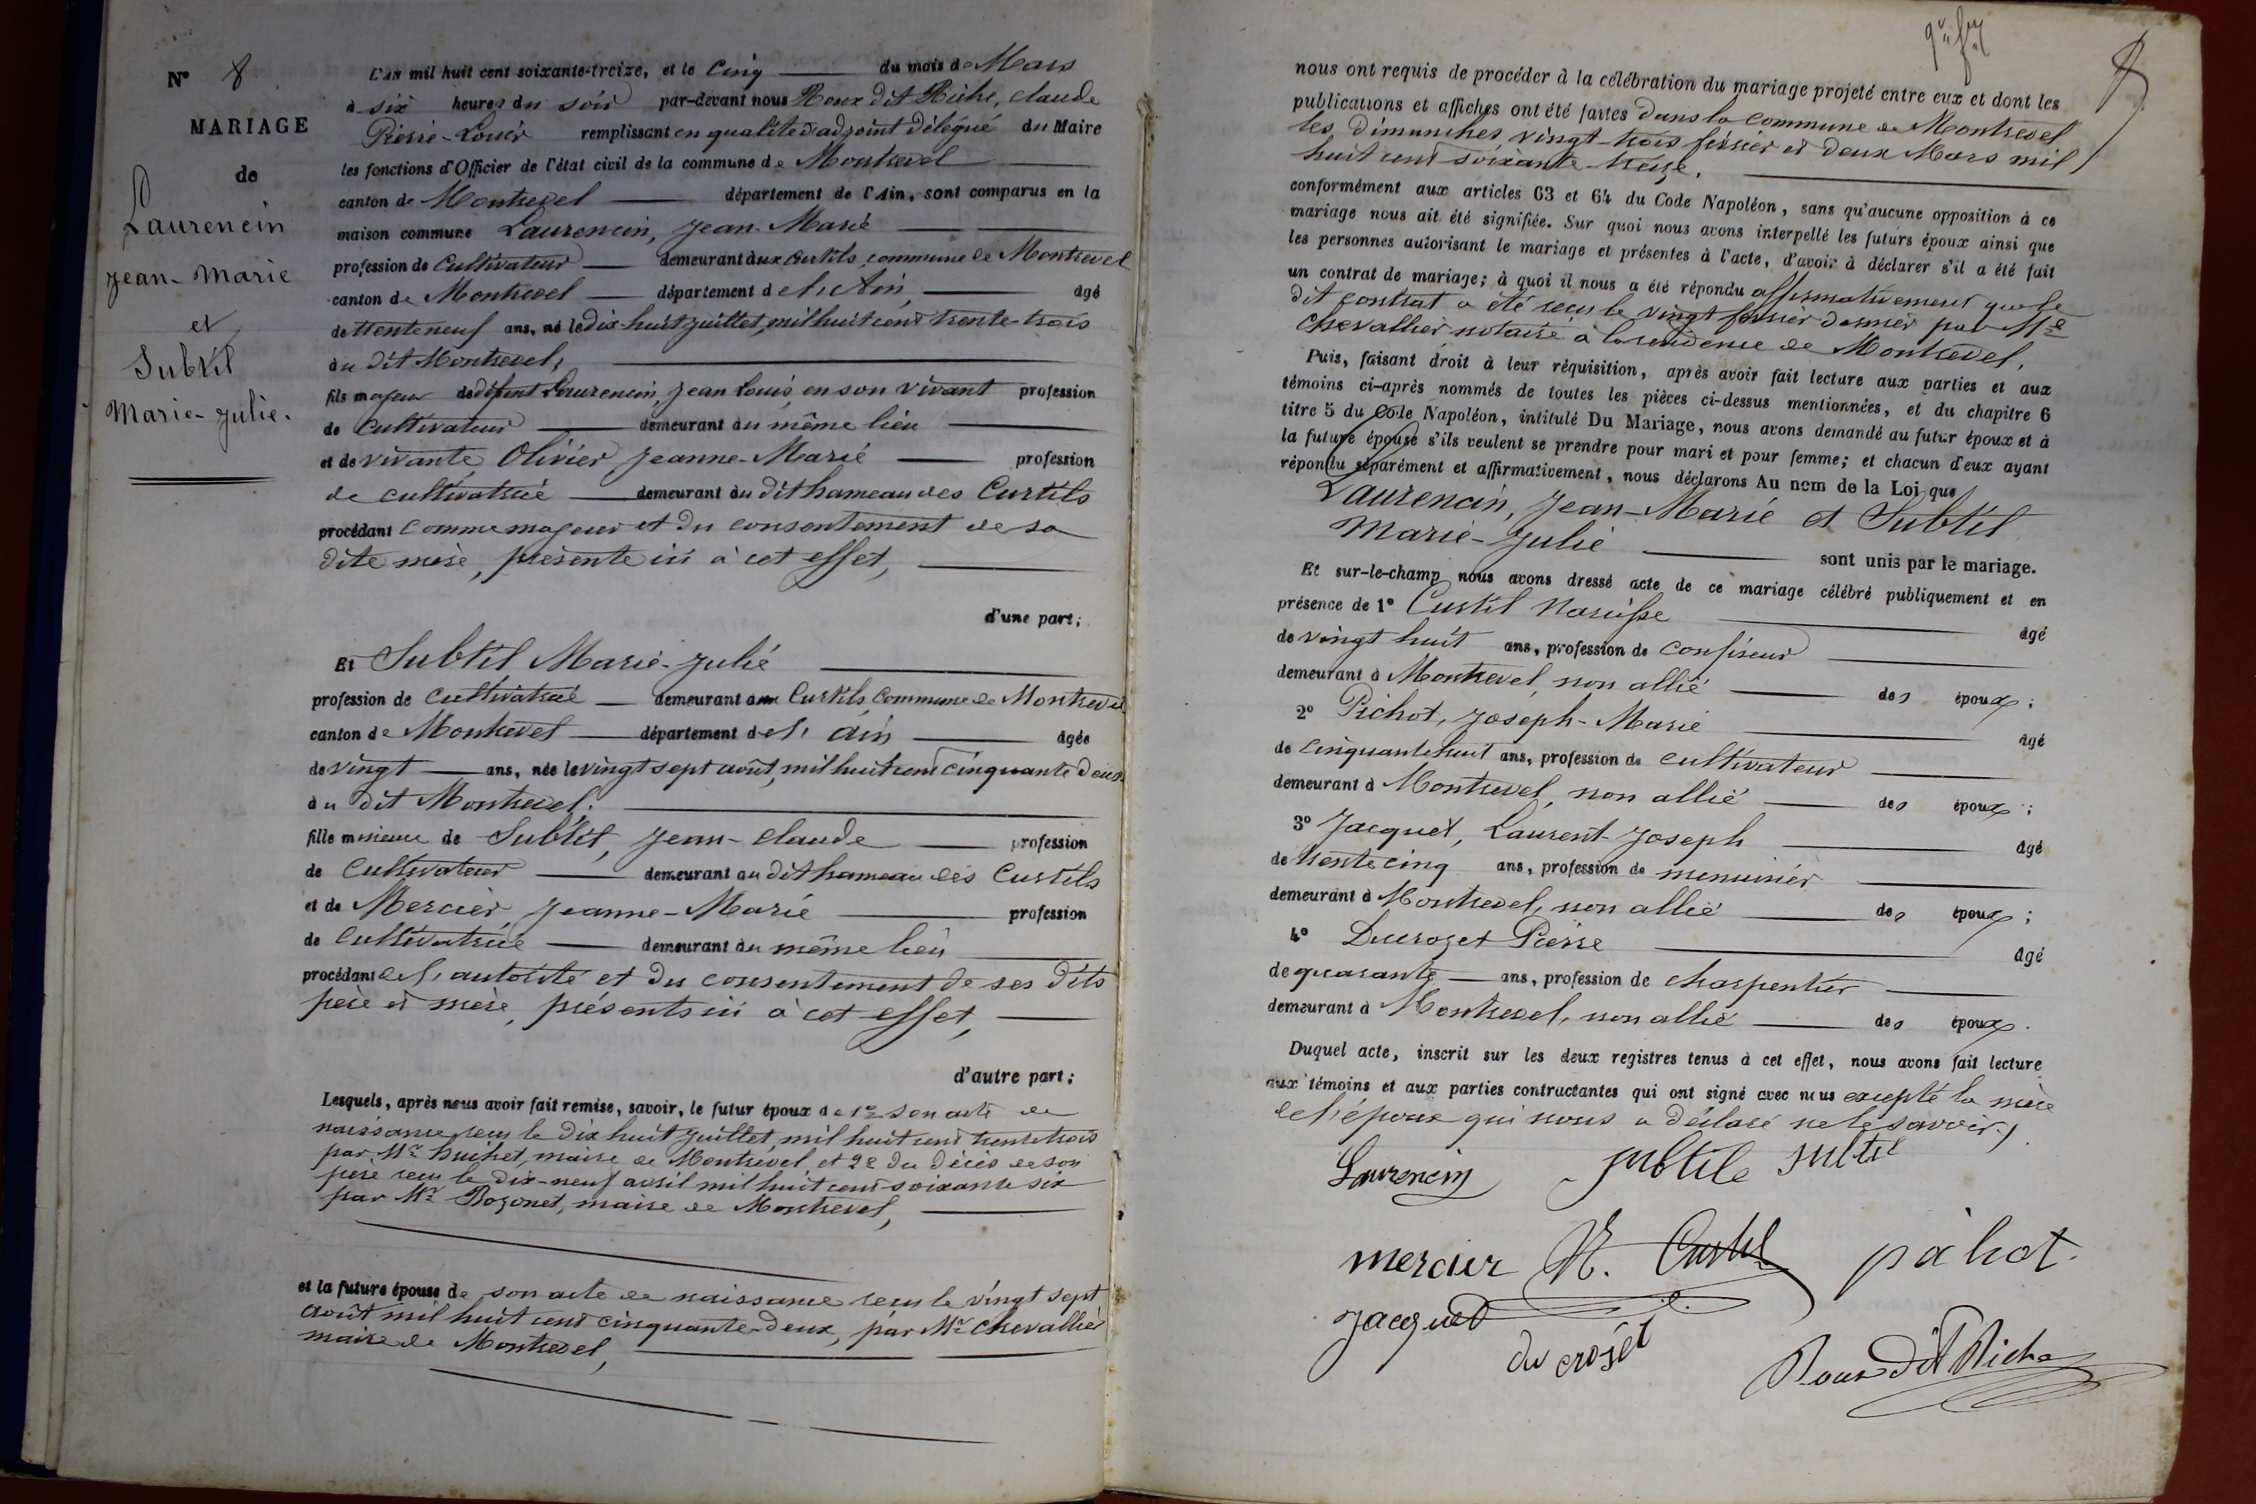 N° 8
MARIAGE
de
Laurencin
Jean-Marie
et
Subtil
Marie-Julie.
L'an mil huit cent soixante-treize, et le Cinq du mois de Mars
à six heures du soir par-devant nous Roux dit Riche, Claude
Pierre-Louis remplissant en qualité d'adjoint délégué du Maire
les fonctions d'Officier de l'état civil de la commune de Montrevel
canton de Montrevel département de l'Ain, sont comparus en la
maison commune Laurencin, Jean-Marie
profession de Cultivateur demeurant aux Curtils, commune de Montrevel
canton de Montrevel département de l'Ain, âgé
de trente neuf ans, né le dix-huit juillet, mil huit cent trente-trois
au dit Montrevel,
fils majeur de défunt Laurencin, Jean Louis, en son vivant profession
de Cultivateur demeurant au même lieu
et de vivante Olivier Jeanne-Marie profession
de cultivatrice demeurant au dit hameau des Curtils
procédant comme majeur et du consentement de sa
dite mère, présente ici à cet effet,
d'une part;
Et Subtil Marie-Julie
profession de cultivatrice demeurant aux Curtils, Commune de Montrevel
canton de Montrevel département de l'Ain âgée
de vingt ans, née le vingt sept août, mil huit cent cinquante deux
au dit Montrevel.
fille mineure de Subtil, Jean-Claude profession
de Cultivateur demeurant au dit hameau des Curtils
et de Mercier, Jeanne-Marie profession
de Cultivatrice demeurant au même lieu
procédant de l'autorité et du consentement de ses dits
père et mère, présents ici à cet effet,
d'autre part;
Lesquels, après nous avoir fait remise, savoir, le futur époux de 1° son acte de
naissance reçu le dix huit juillet, mil huit cent trente trois
par Mr maire de Montrevel, et 2° du décès de son
père reçu le dix-neuf avril mil huit cent soixante six
par Mr Bozonet, maire de Montrevel,
et la future épouse de son acte de naissance reçu le vingt sept
août mil huit cent cinquante-deux, par Mr Chevallier
maire de Montrevel,
8
nous ont requis de procéder à la célébration du mariage projeté entre eux et dont les
publications et affiches ont été faites dans la commune de Montrevel
les Dimanches vingt-trois février et deux Mars mil
huit cent soixante-treize.
conformément aux articles 63 et 64 du Code Napoléon, sans qu'aucune opposition à ce
mariage nous ait été signifiée. Sur quoi nous avons interpellé les futurs époux ainsi que
les personnes autorisant le mariage et présentes à l'acte, d'avoir à déclarer s'il a été fait
un contrat de mariage; à quoi il nous a été répondu affirmativement que le
dit contrat a été reçu le vingt février dernier par Me
Chevallier notaire à la résidence de Montrevel,
Puis, faisant droit à leur réquisition, après avoir fait lecture aux parties et aux
témoins ci-après nommés de toutes les pièces ci-dessus mentionnées, et du chapitre 6
titre 5 du Code Napoléon, intitulé Du Mariage, nous avons demandé au futur époux et à
la future épouse s'ils veulent se prendre pour mari et pour femme; et chacun d'eux ayant
répondu séparément et affirmativement, nous déclarons Au nom de la Loi que
Laurencin, Jean-Marie et Subtil
Marie-Julie sont unis par le mariage.
Et sur-le-champ nous avons dressé acte de ce mariage célébré publiquement et en
présence de 1° Curtil Narcisse âgé
de vingt huit ans, profession de confiseur
demeurant à Montrevel, non allié des époux;
2° Pichot, Joseph-Marie âgé
de cinquante huit ans, profession de cultivateur
demeurant à Montrevel, non allié des époux;
3° Jacquet, Laurent-Joseph âgé
de trente cinq ans, profession de menuisier
demeurant à Montrevel, non allié des époux;
4° Ducrozet Pierre âgé
de quarante ans, profession de charpentier
demeurant à Montrevel, non allié des époux.
Duquel acte, inscrit sur les deux registres tenus à cet effet, nous avons fait lecture
aux témoins et aux parties contractantes qui ont signé avec nous excepté la mère
de l'époux qui nous a déclaré ne le savoir.
Laurencin Subtile Subtil
mercier N. Curtil pichot.
Jacquet
du crozet
Roux dit Riche